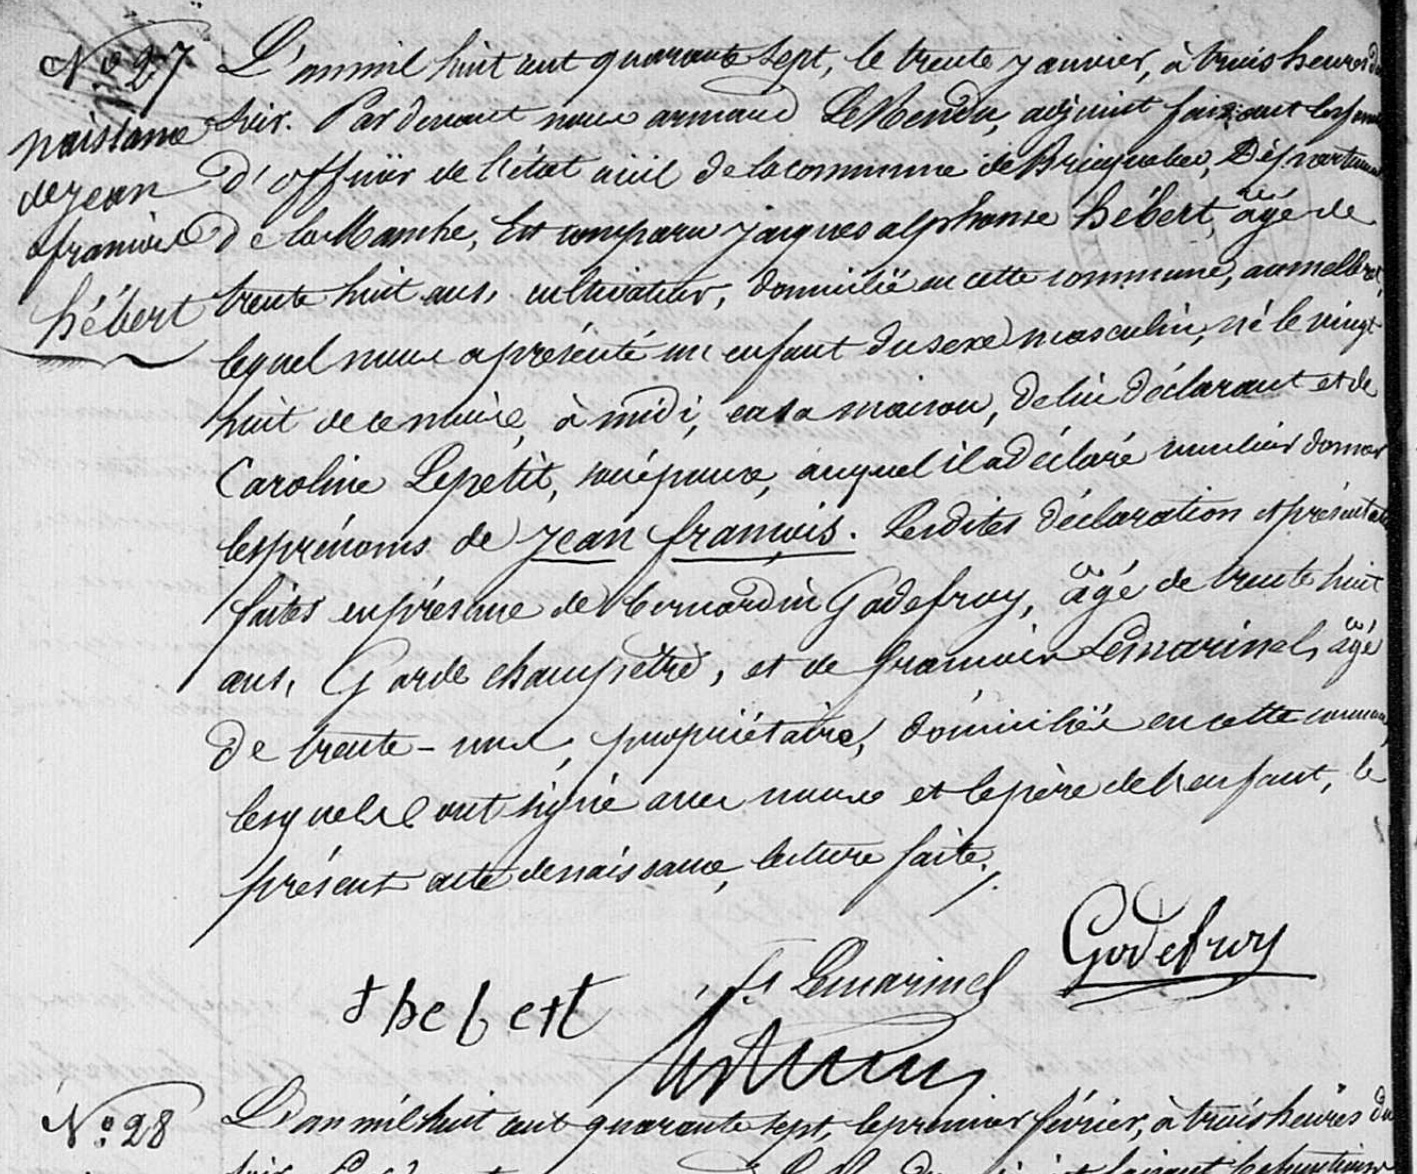 N° 27
naissance
de jean
francois
hébert
L'an mil huit cent quarante sept, le trente janvier, à trois heures du
soir. Par devant nous armand LeRendu, adjoint faisant les fonc
d'officier de l'état civil de la commune de Bricquebec, Département
de la Manche, Est comparu jacques alphonse hébert, âgé de
trente huit ans, cultivateur, domicilié en cette commune,
lequel nous a présenté un enfant du sexe masculin, né le vingt
huit de ce mois, à midi, en sa maison, de lui déclarant et de
Caroline Lepetit, son épouse, auquel il a déclaré vouloir donner
les prénoms de jean françois. Lesdites déclaration et présentation
faites en présence de bernardin Godefroy, âgé de trente huit
ans, Garde champêtre, et de francois Lemarinel, âgé
de trente-un, propriétaire, domiciliés en cette commune,
lesquels ont signé avec nous et le père de l'enfant, le
présent acte de naissance, lecture faite.
Godefroy
fs Lemarinel
hebert
N° 28
L'an mil huit cent quarante sept, le premier février, à trois heures du